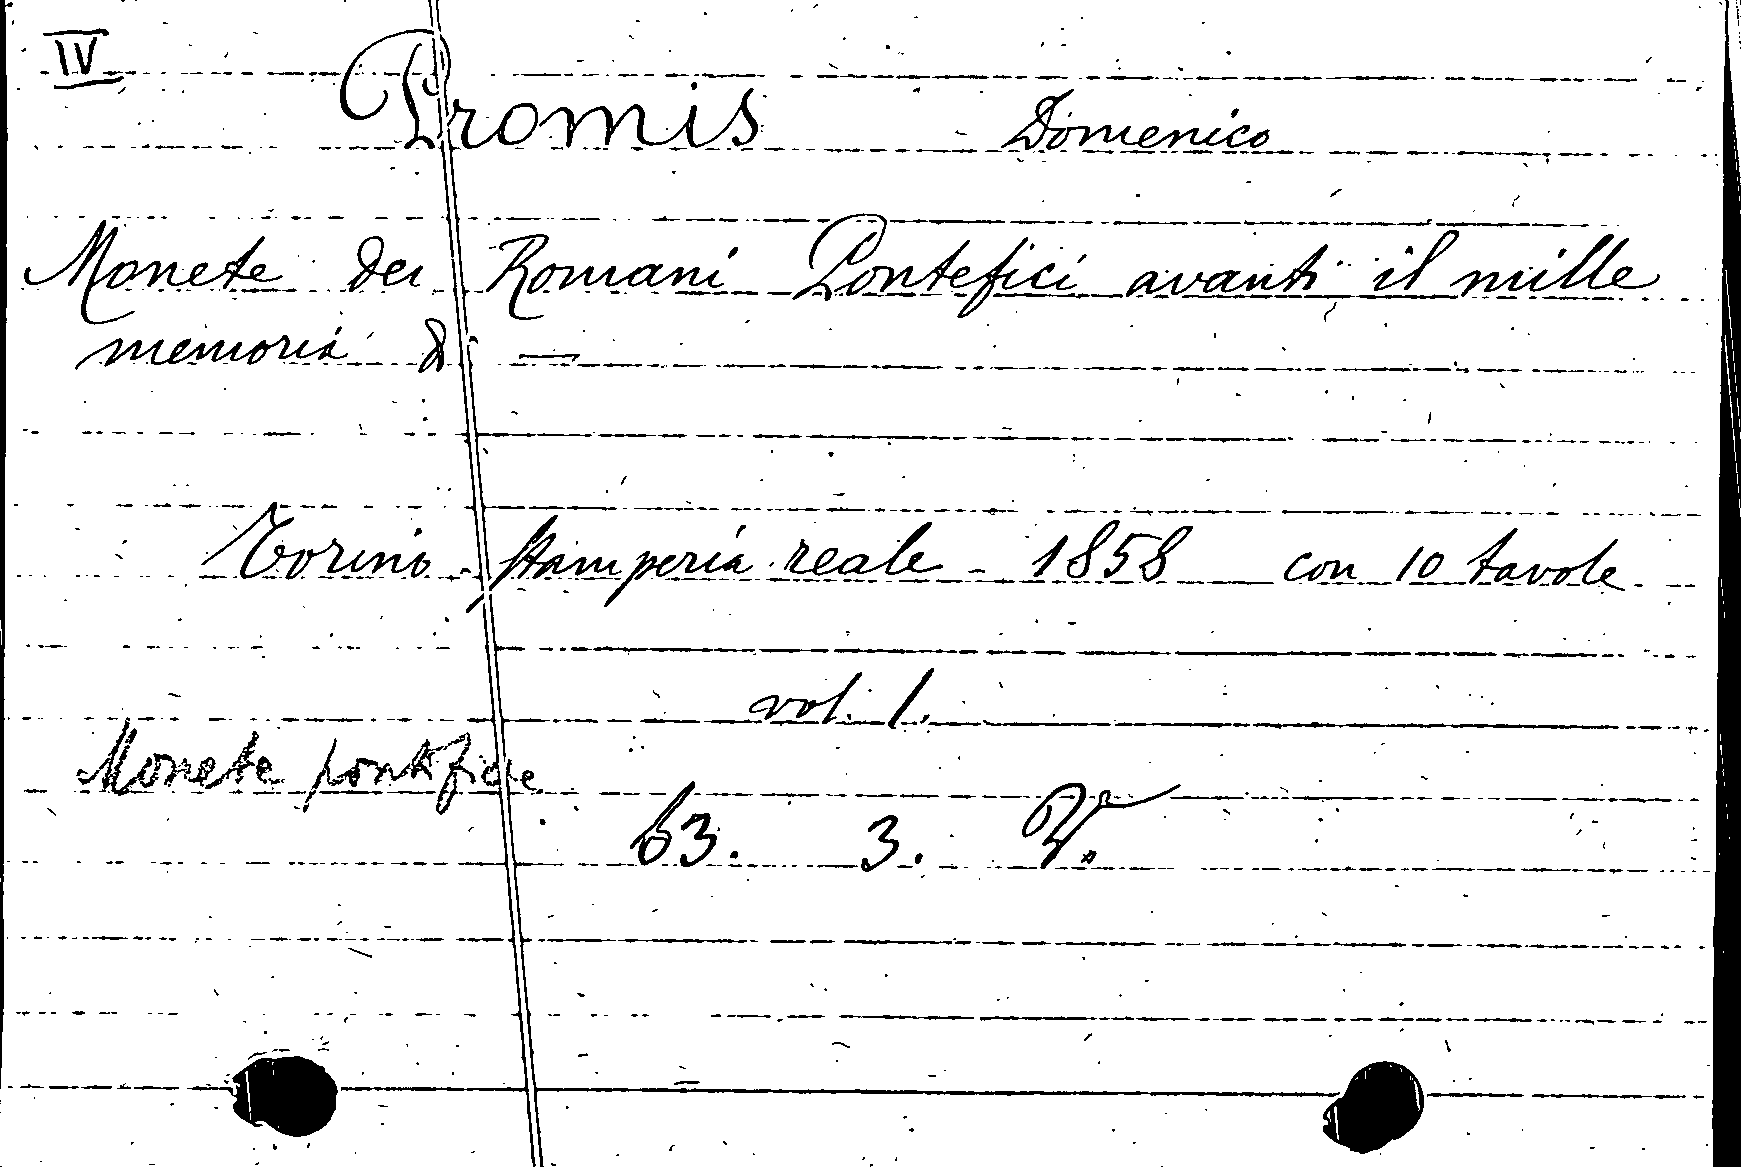 IV
Promis Domenico
Monete dei Romani Pontefici avanti il mille
memoria di —
Torino - Stamperia reale - 1858 con 10 tavole
vol. 1.
Monete pontificie
63. 3. V.